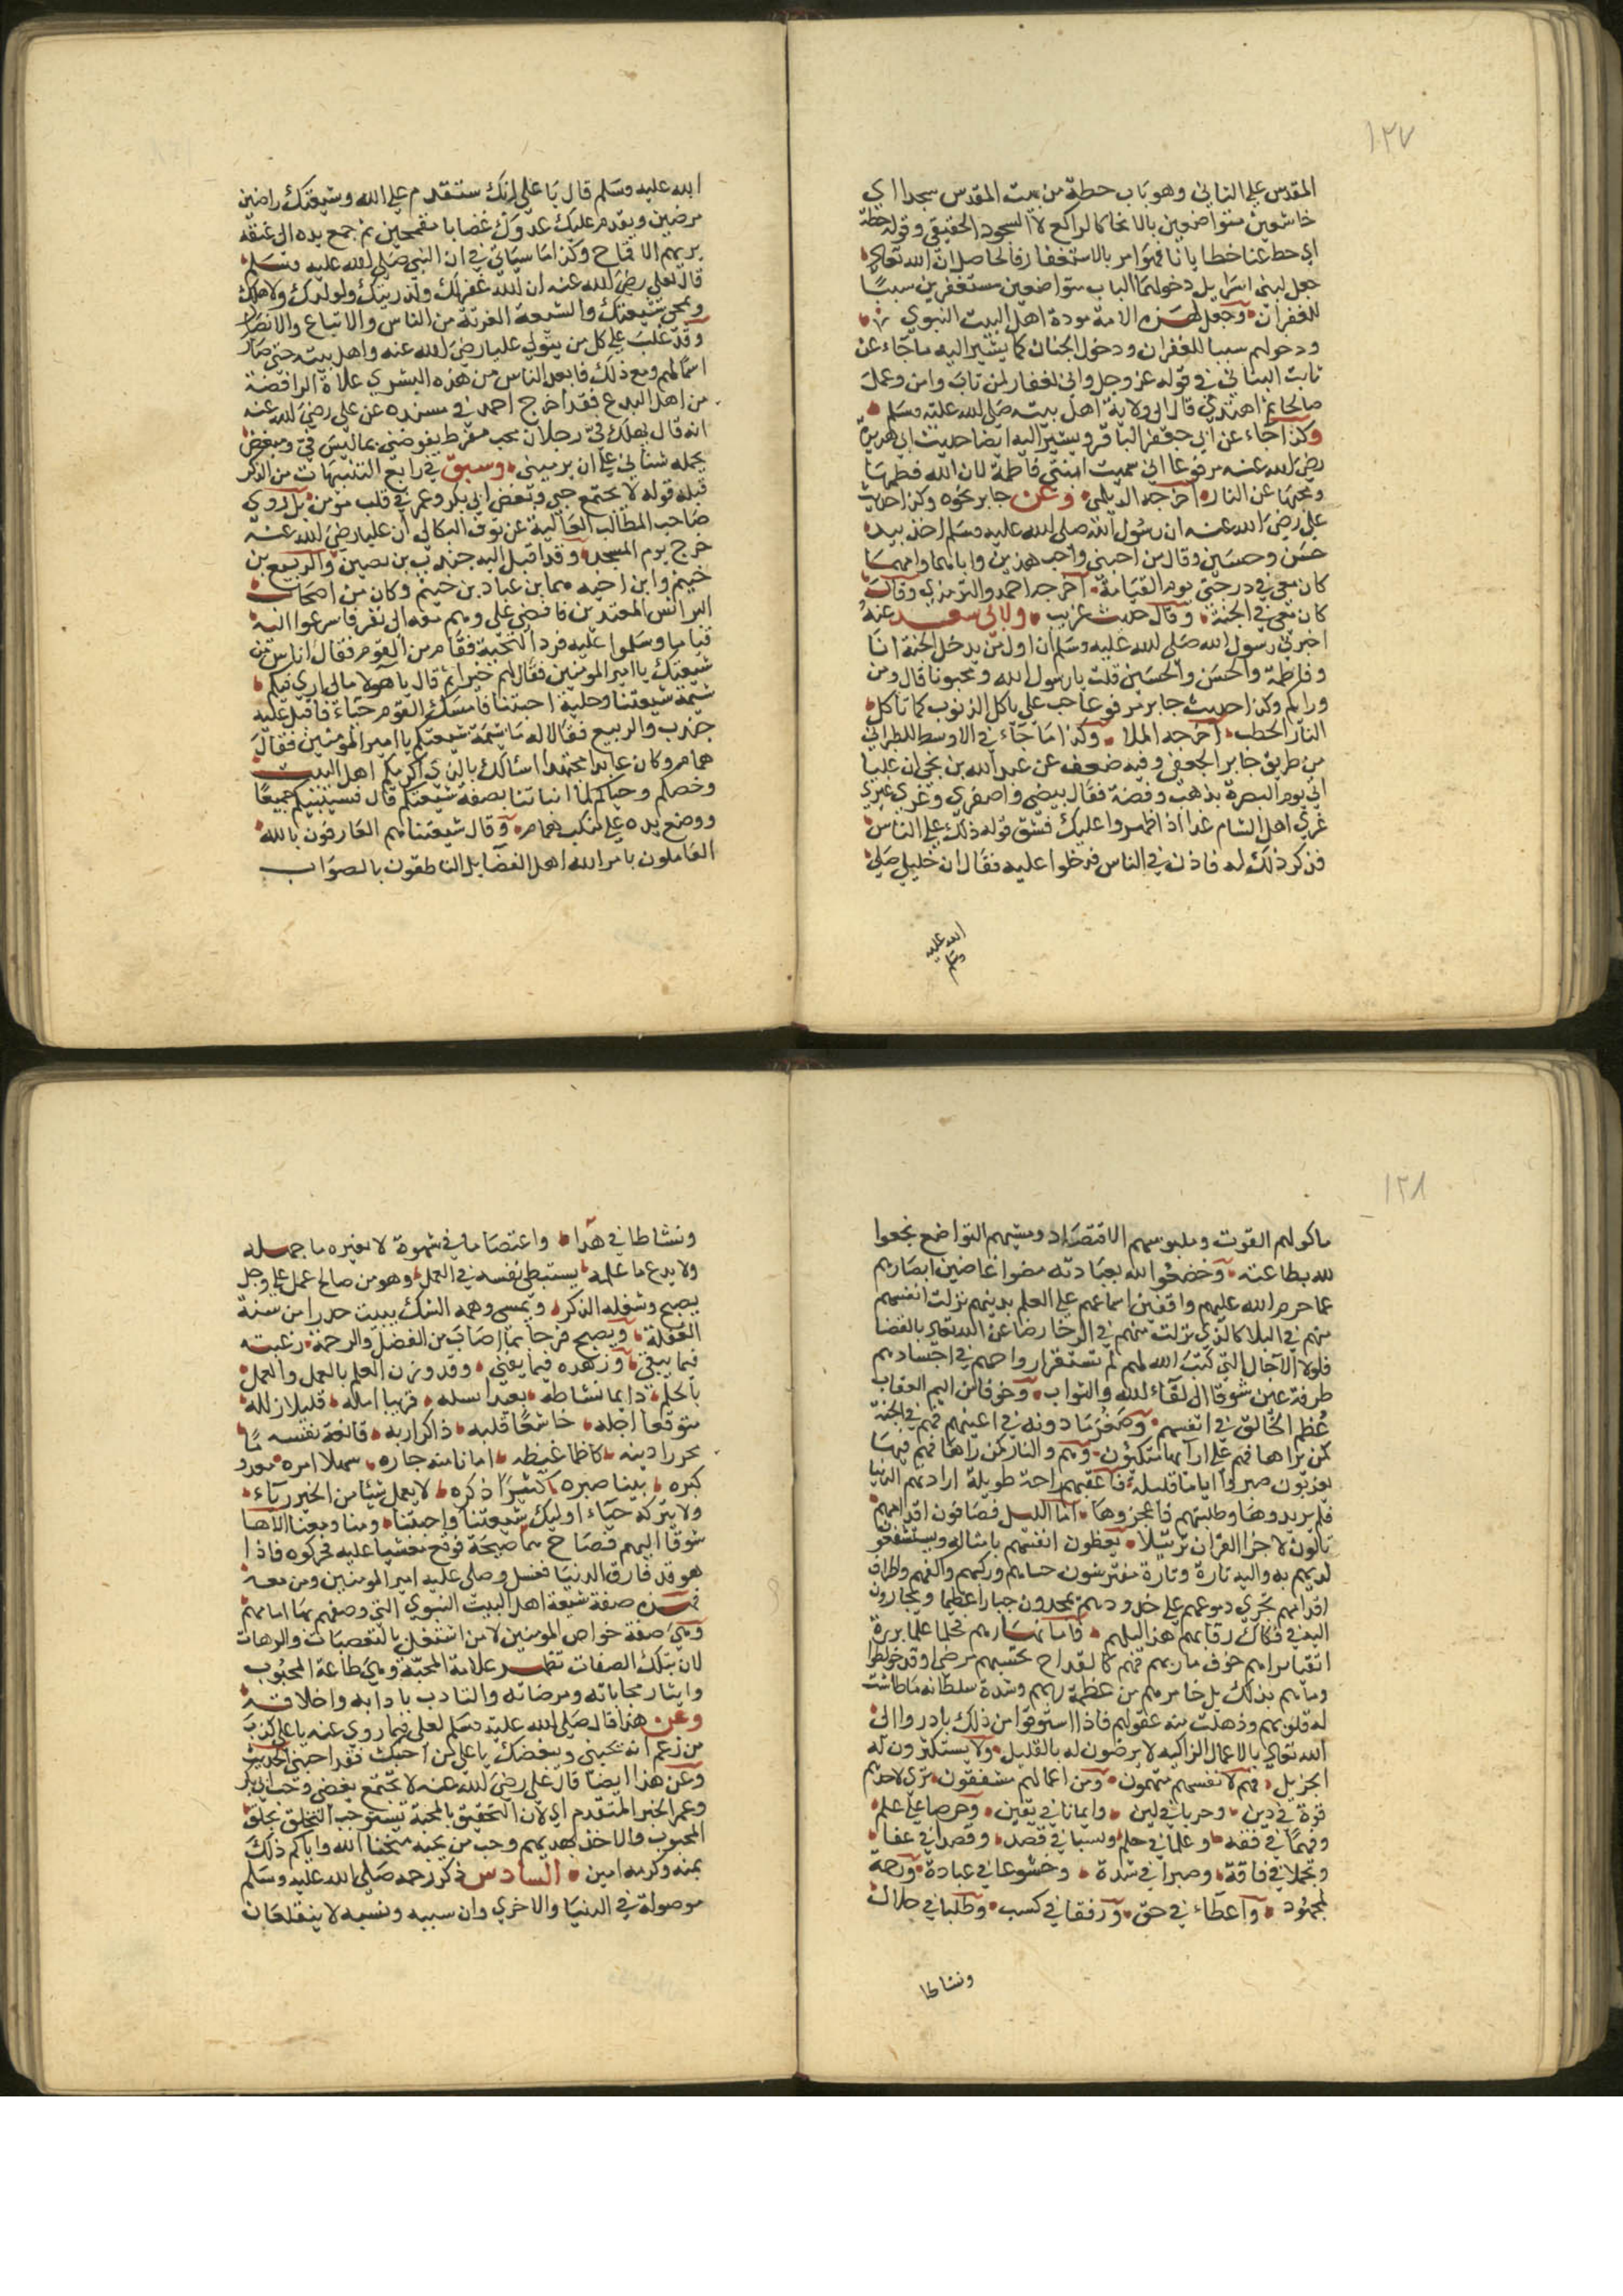 ١٢٧
المقدس على الثاني وهو باب حطة من بيت المقدس سجدا اي
خاشعين متواضعين بالانحنا كالراكع لا السجود الحقيقي وقوله حطة
اي حط عنا خطايانا فهو امر بالاستغفار فالحاصل ان الله تعالى
جعل لبني اسرايل دخولهم الباب متواضعين مستغفرين سببا
للغفران وجعل لهذه الامة مودة اهل البيت النبوي
ودخولهم سببا للغفران ودخول الجنان كما يشير اليه ما جاء عن
ثابت البناني في قوله عز وجل واني لغفار لمن تاب وامن وعمل
صالحا ثم اهتدي قال الى ولاية اهل بيته صلى الله عليه وسلم
وكذا جاء عن ابي جعفر الباقر ويشير اليه ايضا حديث ابي هريرة
رضي الله عنه مرفوعا اني سميت ابنتي فاطمة لان الله فطمها
ومحبها عن النار اخرجه الديلمي وعن جابر نحوه وكذا حديث
علي رضي الله عنه ان رسول الله صلى الله عليه وسلم اخذ بيد
حسن وحسين وقال من احبني واحب هذين واباهما وامهما
كان معي في درجتي يوم القيامة اخرجه احمد والترمذي وقال
كان معي في الجنة وقال حديث غريب ولابي سعد عنه
اخبرني رسول الله صلى الله عليه وسلم ان اول من يدخل الجنة انا
وفاطمة والحسن والحسين قلت يا رسول الله ومحبونا قال ومن
ورايكم وكذا حديث جابر مرفوعا حب علي ياكل الذنوب كما تاكل
النار الحطب اخرجه الملا وكذا ما جاء في الاوسط للطبراني
من طريق جابر الجعفي وفيه ضعف عن عبد الله بن نجي ان عليا
اتي يوم البصرة بذهب وفضة فقال بيضي واصفري وغري غيري
غري اهل الشام غدا اذا ظهروا عليك فشق قوله ذلك على الناس
فذكر ذلك له فاذن في الناس فدخلوا عليه فقال ان خليلي صلى
الله عليه
وسلم
الله عليه وسلم قال يا علي انك ستقدم على الله وشيعتك راضين
مرضين ويقدم عليك عدوك غضابا مقمحين ثم جمع يده الى عنقه
يريهم الاقماح وكذا ما سياتي في ان النبي صلى الله عليه وسلم
قال لعلي رضي الله عنه ان الله غفر لك ولذريتك ولولدك ولاهلك
ومحبي شيعتك والشيعة الفرقة من الناس والاتباع والانصار
وقد غلب على كل من يتولى عليا رضي الله عنه واهل بيته حتى صار
اسما لهم ومع ذلك فابعد الناس من هذه البشرى غلاة الرافضة
من اهل البدع فقد اخرج احمد في مسنده عن علي رضي الله عنه
انه قال يهلك في رجلان محب مفرط يفرضني بما ليس في ومبغض
يحمله شناني على ان يرميني وسبق في رابع التنبيهات من الذكر
قبله قوله لا يجتمع حبي وبغض ابي بكر وعمر في قلب مومن بل روى
صاحب المطالب العالية عن نوف البكالي ان عليا رضي الله عنه
خرج يوم المسجد وقد اقبل اليه جندب بن نصير والربيع بن
خيثم وابن اخيه همام بن عباد بن خيثم وكان من اصحاب
البرانس المعتمدين فافضي علي وهم معه الى نفر فاسرعوا اليه
قياما وسلموا عليه فرد التحية فقام من القوم فقال اناس من
شيعتك يا امير المومنين فقال لهم خيرا ثم قال يا هولا مالي لا ارى فيكم
شيمة شيعتنا وحلية احبتنا فامسك القوم حياء فاقبل عليه
جندب والربيع فقالا له ما شيمة شيعتكم يا امير المومنين فقال
همام وكان عابدا مجتهدا اسالك بالذي اكرمكم اهل البيت
وخصكم وحباكم لما انباتنا بصفة شيعتكم قال فسينبيكم جميعا
ووضع يده على منكب همام وقال شيعتنا هم العارفون بالله
العاملون بامر الله اهل الفضايل الناطقون بالصواب
١٢٨
ماكولهم القوت وملبوسهم الاقتصاد ومشيهم التواضع بخعوا
لله بطاعته وخضعوا لله بعبادته مضوا غاضين ابصارهم
عما حرم الله عليهم واقفين اسماعهم على العلم بدينهم نزلت انفسهم
منهم في البلا كالذي نزلت منهم في الرخا رضا عن الله تعالى بالقضا
فلولا الآجال التي كتب الله لهم لم تستقر ارواحهم في اجسادهم
طرفة عين شوقا الى لقاء الله والثواب وخوفا من اليم العقاب
عظم الخالق في انفسهم وصغر ما دونه في اعينهم فهم في الجنة
كمن يراها فهم على ارايكها متكيون وهم والنار كمن راها فهم فيها
يعذبون صبروا اياما قليلة فاعقبهم راحة طويلة ارادتهم الدنيا
فلم يريدوها وطلبتهم فاعجزوها اما الليل فصافون اقدامهم
تالون لاجزا القران ترتيلا يعظون انفسهم بامثاله ويستشفون
لديهم به واليه تارة وتارة مفترشون جباههم وركبهم والفهم واطراف
اقدامهم تجري دموعهم على خدودهم يمجدون جبارا عظيما ويجارون
اليه في فكاك رقابهم هذا ليلهم فاما نهارهم فحلما علما بررة
اتقيا براهم خوف باريهم فهم كالقداح تحسبهم مرضى او قد خولطوا
وما هم بذلك بل خامرهم من عظمة ربهم وشدة سلطانه ما طاشت
له قلوبهم وذهلت منه عقولهم فاذا استوقوا من ذلك بادروا الى
الله تعالى بالاعمال الزاكية لا يرضون له بالقليل ولا يستكثرون له
الجزيل فهم لانفسهم متهمون ومن اعمالهم مشفقون ترى لاحدهم
قوة في دين وحزما في لين وايمانا في يقين وحرصا على علم
وفهما في فقه وعلما في حلم وكسبا في قصد وقصدا في غنا
وتجملا في فاقة وصبرا في شدة وخشوعا في عبادة ورحمة
لمجهود واعطاء في حق ورفقا في كسب وطلبا في حلال
ونشاطا
ونشاطا في هدا واعتصاما في شهوة لا يغيره ما جهله
ولا يدع ما علمه يستبطي نفسه في العمل وهو من صالح عمل على وجل
يصبح وشغله الذكر ويمسي وهمه الشكر يبيت حذرا من سنة
الغفلة ويصبح فرحا بما اصاب من الفضل والرحمة رغبته
فيما يبقى وزهده فيما يفنى وقد قرن العلم بالعمل والعمل
بالحلم دايما نشاطه بعيدا كسله قريبا امله قليلا زلله
متوقعا اجله خاشعا قلبه ذاكرا ربه قانعة نفسه
محرزا دينه كاظما غيظه امنا منه جاره سهلا امره معدوم
كبره بينا صبره كثيرا ذكره لا يعمل شيئا من الخير رياء
ولا يتركه حياء اوليك شيعتنا واحبتنا ومنا ومعنا الا ها
شوقا اليهم فصاح همام صيحة فوقع مغشيا عليه فحركوه فاذا
هو قد فارق الدنيا فغسل وصلى عليه امير المومنين ومن معه
فهذه صفة شيعة اهل البيت النبوي التي وصفهم بها امامهم
وهي صفة خواص المومنين لا من اشتغل بالتعصبات والترهات
لان بتلك الصفات تظهر علامة المحبة وهي طاعة المحبوب
وايثار محابه ومرضاته والتادب بادابه واخلاقه
وعن هذا قال صلى الله عليه وسلم لعلي فيما روي عنه يا علي كذب
من زعم انه يحبني ويبغضك يا علي من احبك فقد احبني الحديث
وعن هذا ايضا قال علي رضي الله عنه لا يجتمع بغضي وحب ابي بكر
وعمر الخبر المتقدم اي لان التحقيق بالمحبة يستوجب التخلق بخلق
المحبوب والاخذ بهديهم وحب من يحبه منحنا الله واياكم ذلك
بمنه وكرمه امين السادس ذكر رحمه صلى الله عليه وسلم
موصولة في الدنيا والاخرى وان سببه ونسبه لا ينقطعان